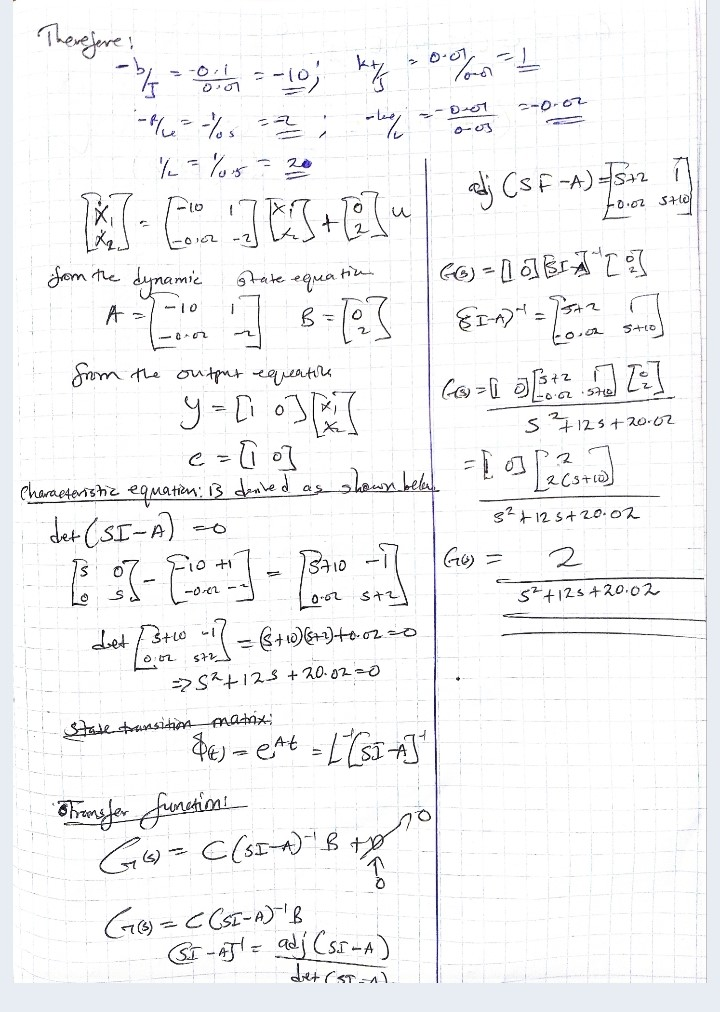 Therefore:
-b/J = -0.1/0.01 = -10; kt/J = 0.01/0.01 = 1
-R/Le = -1/0.5 = -2 ; -ke/L = -0.01/0.05 = -0.02
1/L = 1/0.5 = 20
[ẋ1; ẋ2] = [-10 1; -0.02 -2] [x1; x2] + [0; 2] u
from the dynamic state equation
A = [-10 1; -0.02 -2] B = [0; 2]
from the output equation
y = [1 0] [x1; x2]
c = [1 0]
Characteristic equation: is derived as shown below
det(SI-A) = 0
[s 0; 0 s] - [-10 +1; -0.02 -2] = [s+10 -1; 0.02 s+2]
det [s+10 -1; 0.02 s+2] = (s+10)(s+2)+0.02 = 0
=> s²+12s+20.02=0
State transition matrix:
Φ(t) = e^At = L⁻¹[SI-A]⁻¹
Transfer function:
G(s) = C(SI-A)⁻¹ B + D → 0
0
G(s) = C(SI-A)⁻¹B
(SI-A)⁻¹ = adj(SI-A) / det(SI-A)
adj (SF-A) = [s+2 1; -0.02 s+10]
G(s) = [1 0] [SI-A]⁻¹ [0; 2]
(SI-A)⁻¹ = [s+2 1; -0.02 s+10]
G(s) = [1 0] [s+2 1; -0.02 s+10] [0; 2]
s²+12s+20.02
= [1 0] [2; 2(s+10)]
s²+12s+20.02
G(s) = 2
s²+12s+20.02